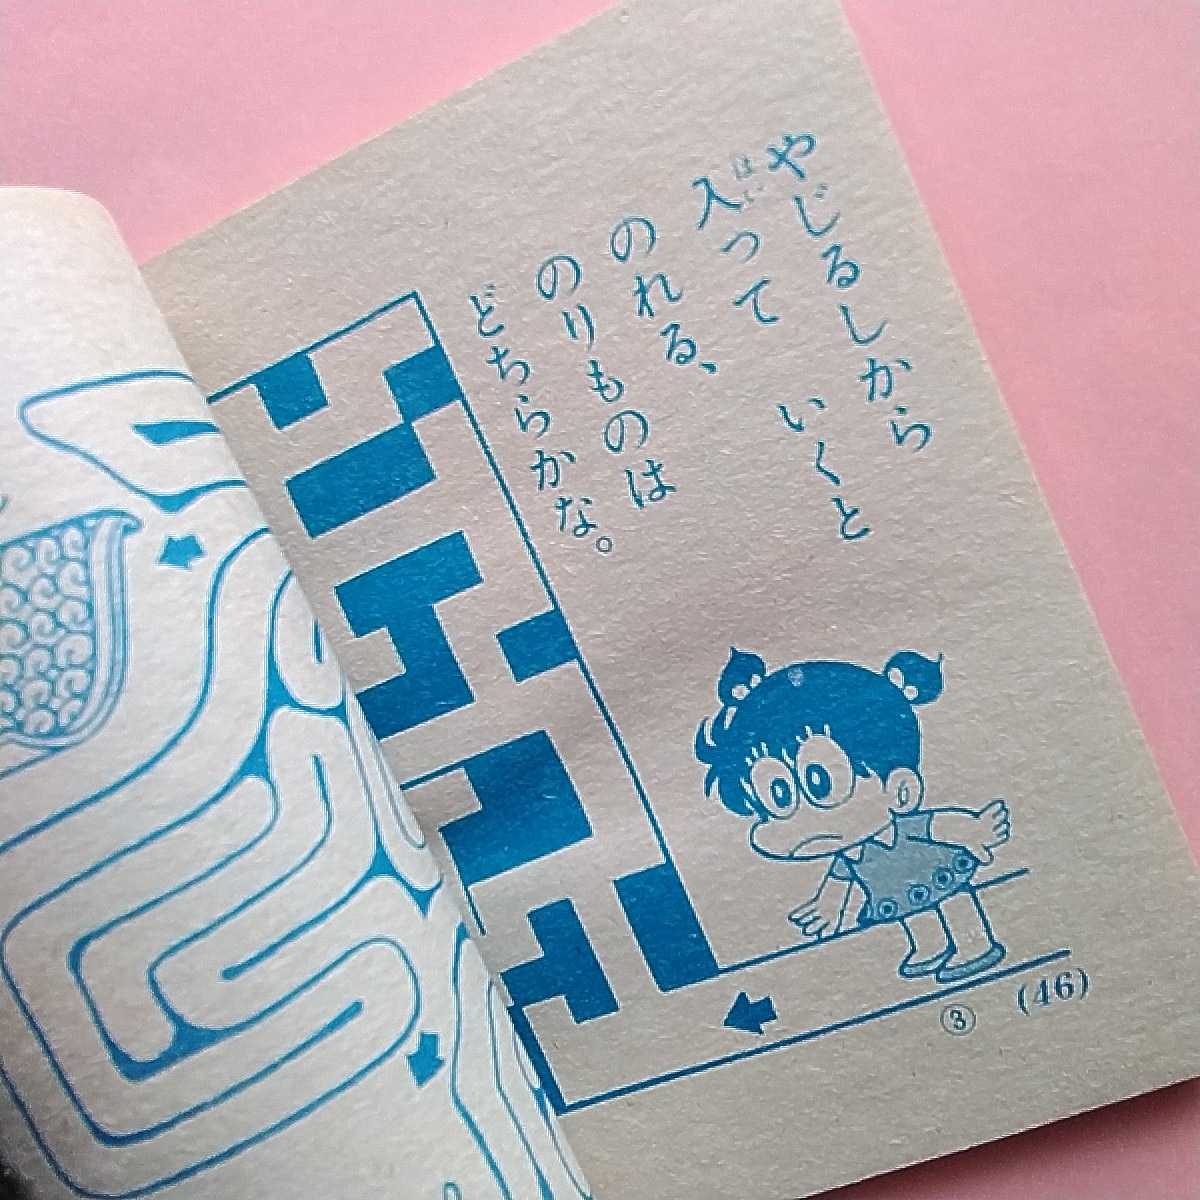 やじるしから
入って　いくと
はい
のれる、
のりものは
どちらかな。
③
(46)